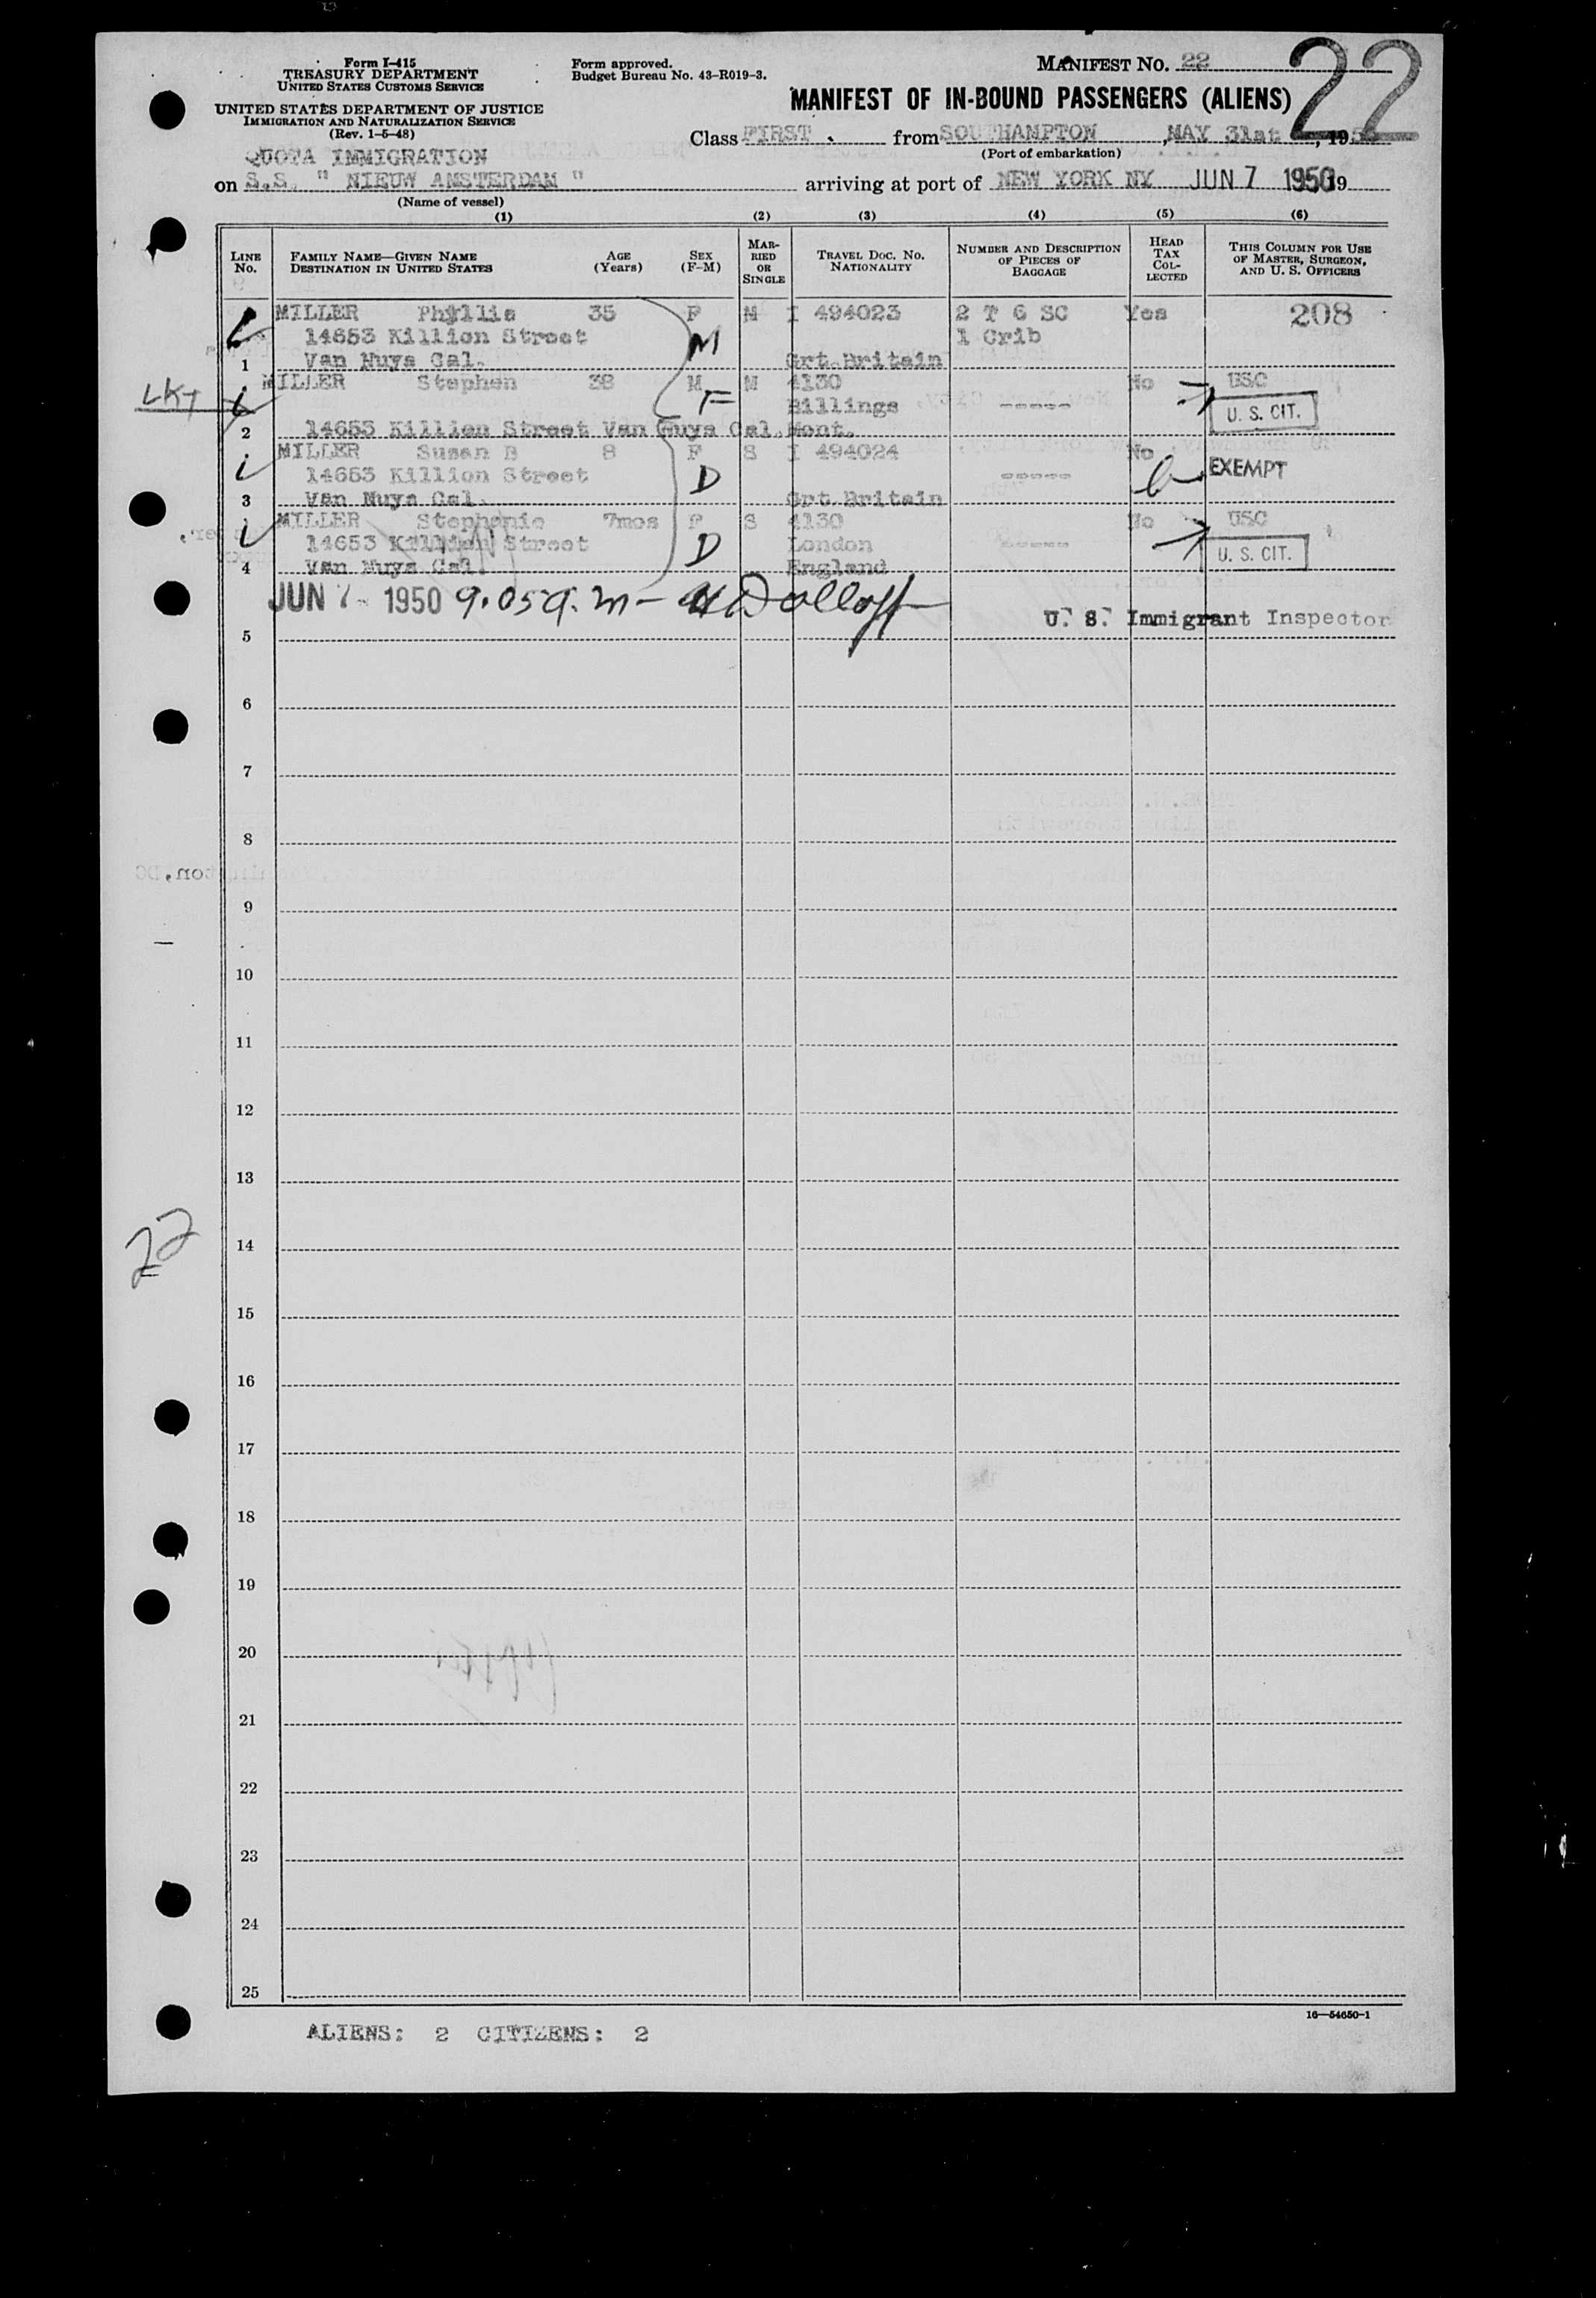 Form I-415
TREASURY DEPARTMENT
UNITED STATES CUSTOMS SERVICE
UNITED STATES DEPARTMENT OF JUSTICE
IMMIGRATION AND NATURALIZATION SERVICE
(Rev. 1-5-48)
Form approved.
Budget Bureau No. 43-R019-3.
MANIFEST NO. 22
22
MANIFEST OF IN-BOUND PASSENGERS (ALIENS)
Class FIRST . from SOUTHAMPTON , MAY 31st , 1950
(Port of embarkation)
QUOTA IMMIGRATION
on S.S. " NIEUW AMSTERDAM " arriving at port of NEW YORK NY JUN 7 1950 19
(Name of vessel)
(1) (2) (3) (4) (5) (6)
LINE NO.
FAMILY NAME—GIVEN NAME
DESTINATION IN UNITED STATES
AGE (Years)
SEX (F-M)
MARRIED OR SINGLE
TRAVEL DOC. NO. NATIONALITY
NUMBER AND DESCRIPTION OF PIECES OF BAGGAGE
HEAD TAX COLLECTED
THIS COLUMN FOR USE OF MASTER, SURGEON, AND U. S. OFFICERS
MILLER Phyllis 35 F M I 494023 2 T 6 SC Yes 208
14653 Killion Street M 1 Crib
1 Van Nuys Cal. Grt.Britain
MILLER Stephen 38 M M 4130 No USC
LKT F Billings ----- U. S. CIT.
2 14653 Killion Street Van Nuys Cal. Mont.
MILLER Susan B 8 F S I 494024 No
14653 Killion Street D ----- EXEMPT
3 Van Nuys Cal. Grt.Britain
MILLER Stephanie 7mos F S 4130 No USC
14653 Killion Street D London ----- U. S. CIT.
4 Van Nuys Cal. England
JUN 7 - 1950 9.05 a.m - Dolloff
U. S. Immigrant Inspector
5
6
7
8
9
10
11
12
13
14
22
15
16
17
18
19
20
21
22
23
24
25
16—54650-1
ALIENS: 2 CITIZENS: 2